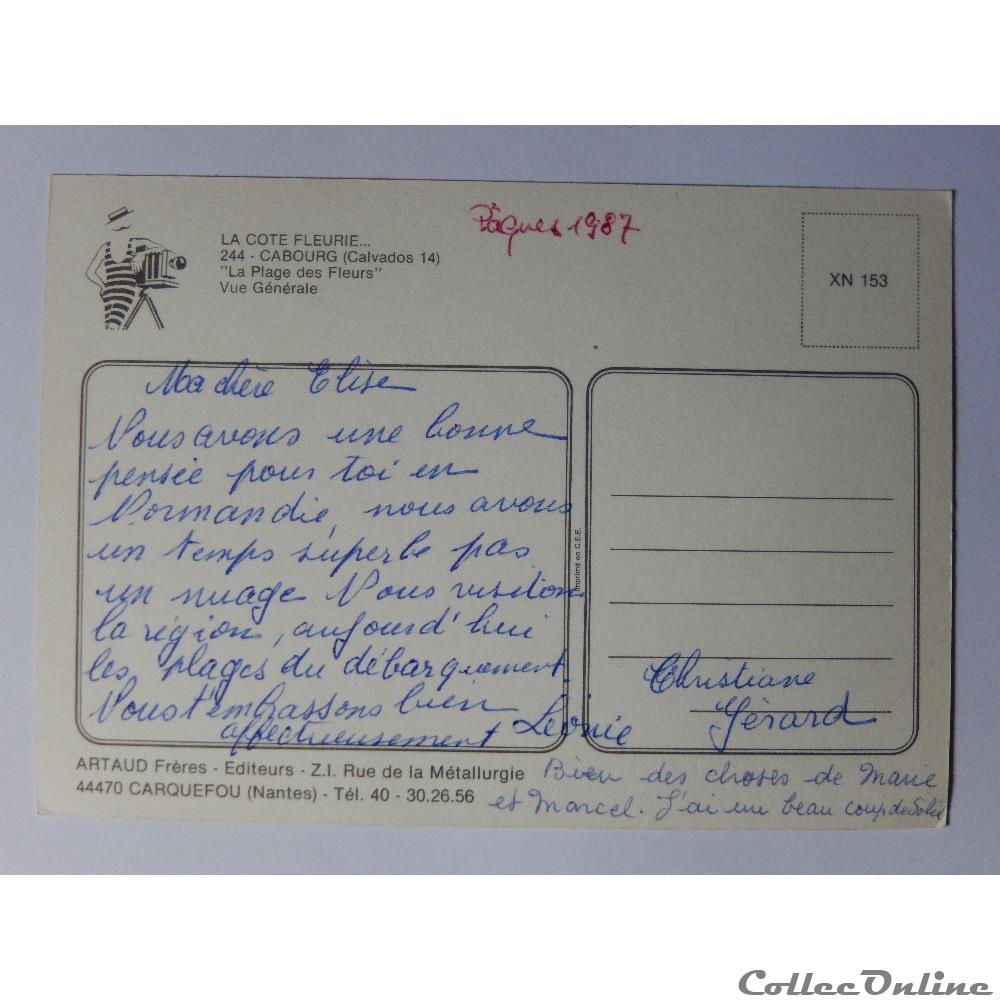 Pâques 1987
LA COTE FLEURIE...
244 - CABOURG (Calvados 14)
"La Plage des Fleurs"
Vue Générale
XN 153
Ma chère Elise
Nous avons une bonne
pensée pour toi en
Normandie, nous avons
un temps superbe pas
un nuage Nous visitons
la région, aujourd'hui
les plages du débarquement.
Nous t'embrassons bien
affectueusement Léonie
Christiane
Gérard
Imprimé en C.E.E.
ARTAUD Frères - Editeurs - Z.I. Rue de la Métallurgie
44470 CARQUEFOU (Nantes) - Tél. 40 - 30.26.56
Bien des choses de Marie
et Marcel. J'ai un beau coup de Soleil
CollecOnline